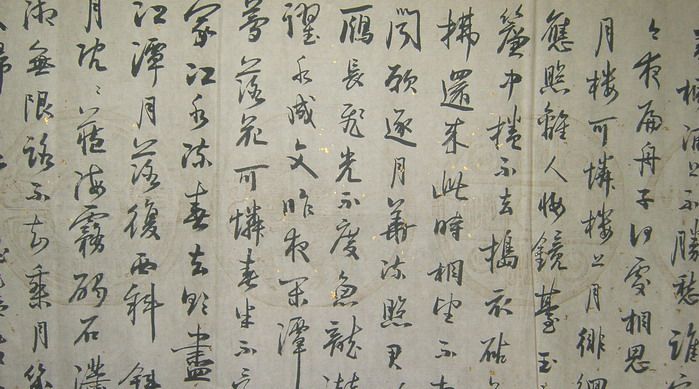 楓浦上不勝愁誰
夜扁舟子何處相思
月樓可憐樓上月徘徊
應照離人妝鏡臺玉
簾中捲不去搗衣砧
拂還來此時相望不
聞願逐月華流照君
鴈長飛光不度魚龍潛
躍水成文昨夜閒潭
夢落花可憐春半不還
家江水流春去欲盡
江潭月落復西斜斜
月沉々藏海霧碣石瀟
湘無限路不知乘月幾
歸